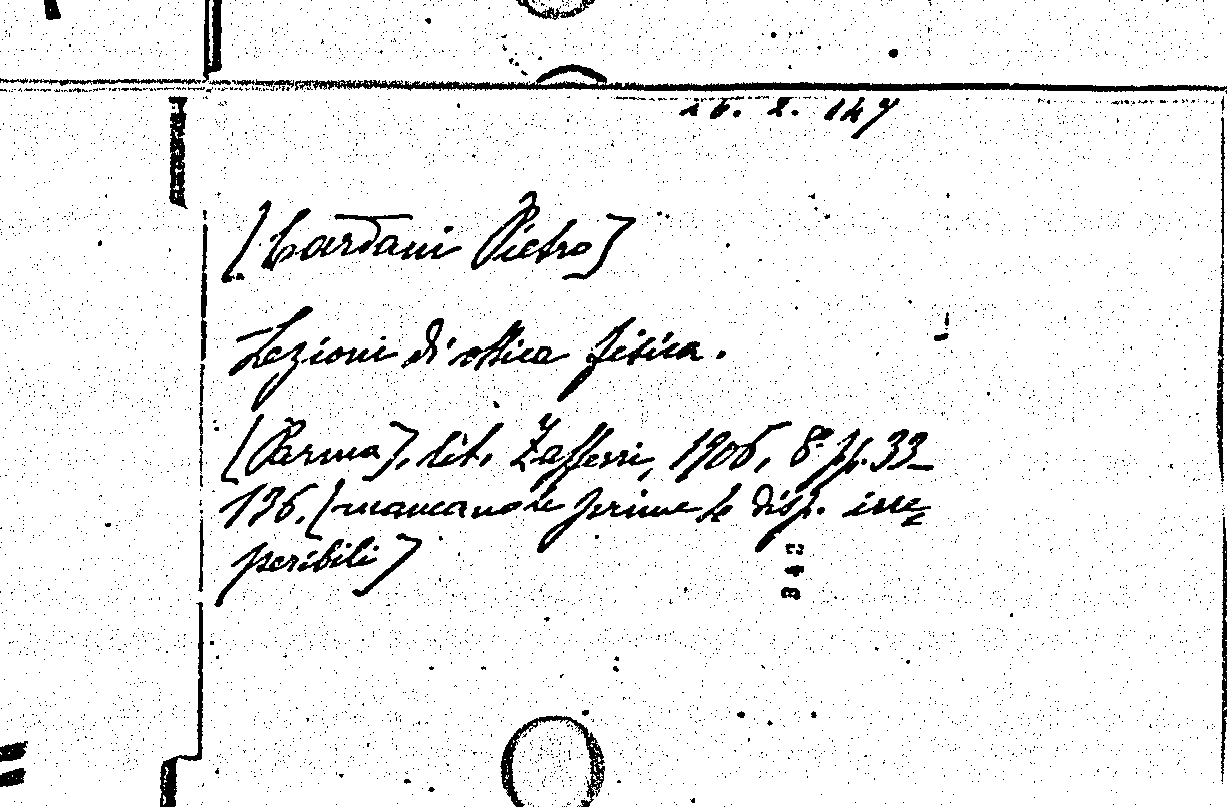 26. 2. 147
[Cardani Pietro]
Lezioni di ottica fisica.
[Parma], lit. Zafferri, 1906, 8° pp. 33-
136. [mancano le prime 4 disp. irre=
peribili]